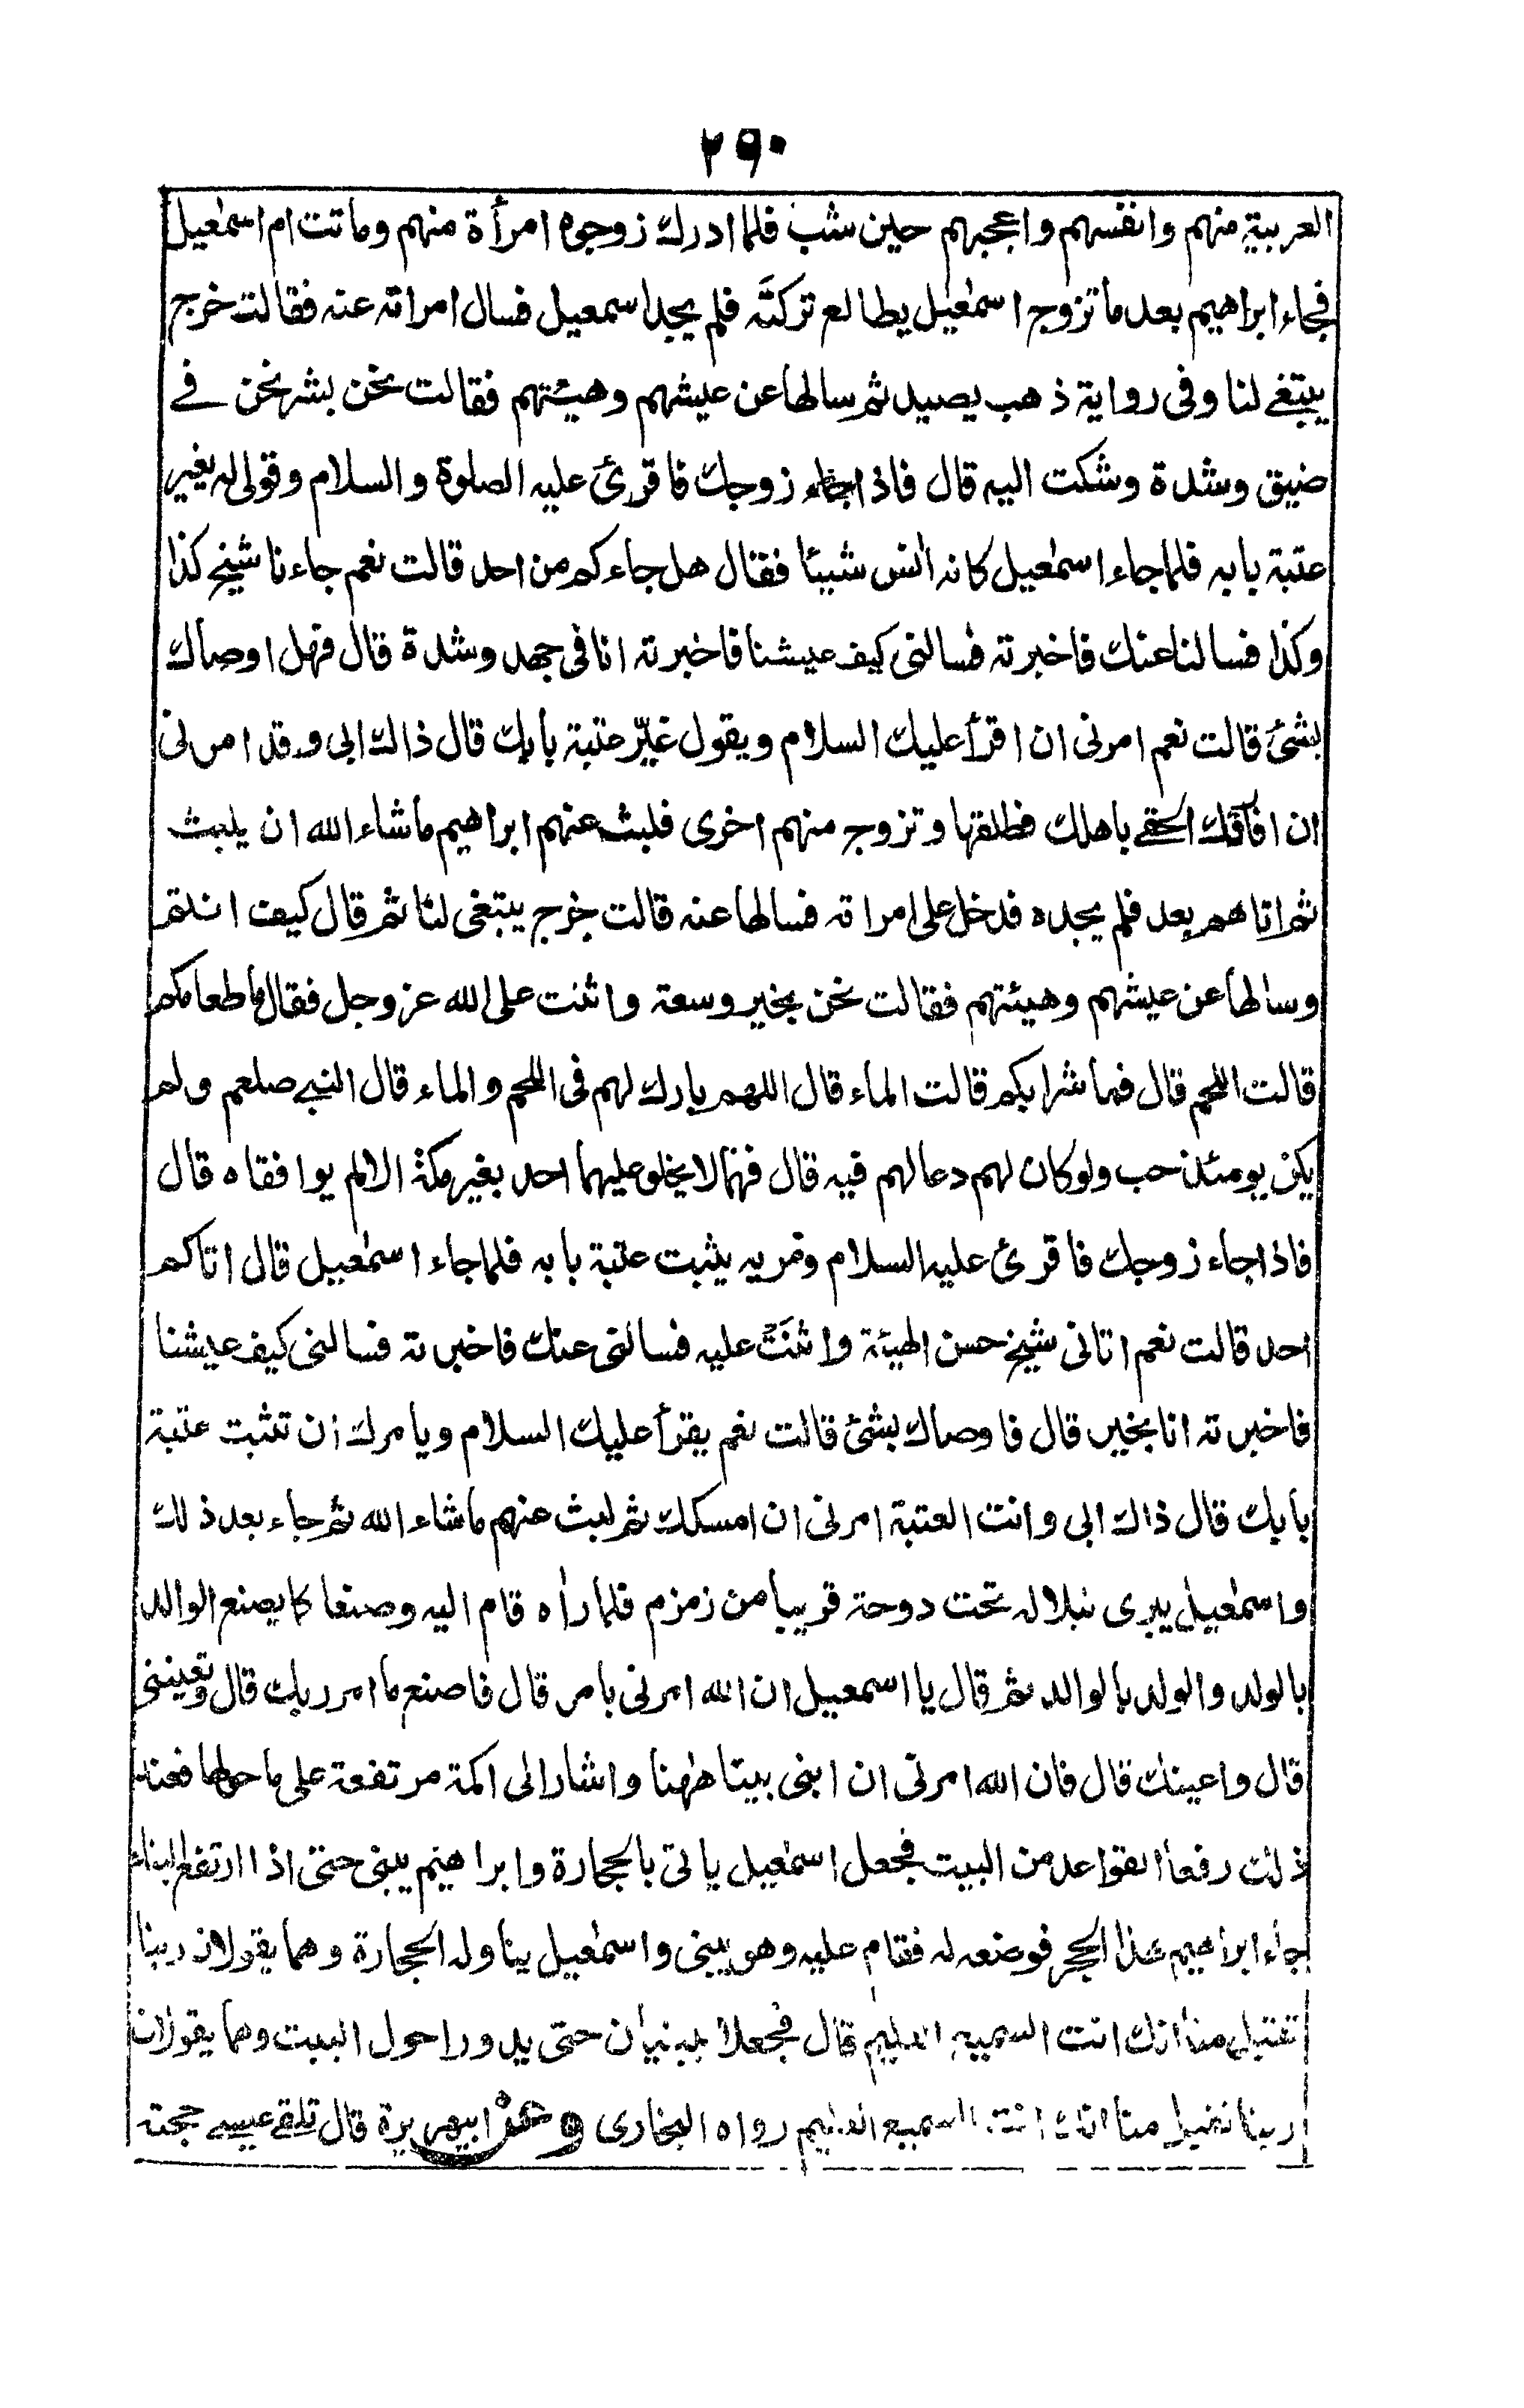 ٢٩٠
العربية منهم وانفسهم واعجبهم حين شب فلما ادرك زوجوه امرأة منهم وماتت ام اسمٰعيل
فجاء ابراهيم بعد ما تزوج اسمٰعيل يطالع تركته فلم يجد اسمعيل فسال امراته عنه فقالت خرج
يبتغے لنا وفى رواية ذهب يصيد ثم سالها عن عيشهم وهيئتهم فقالت نحن بشر نحن فے
ضيق وشدة وشكت اليه قال فاذا جاء زوجك فاقرئ عليه الصلوة والسلام وقولى له يغير
عتبة بابه فلما جاء اسمٰعيل كانه اٰنس شيئا فقال هل جاءكم من احد قالت نعم جاءنا شيخ كذا
وكذا فسالنا عنك فاخبرته فسالنى كيف عيشنا فاخبرته انا فى جهد وشدة قال فهل اوصاك
بشئ قالت نعم امرنى ان اقرأ عليك السلام ويقول غيّر عتبة بابك قال ذالك ابى وقد امرنى
ان افارقك الحقے باهلك فطلقها وتزوج منهم اخرى فلبث عنهم ابراهيم ماشاء الله ان يلبث
ثم اتاهم بعد فلم يجده فدخل على امراته فسالها عنه قالت خرج يبتغى لنا ثم قال كيف انتم
وسالها عن عيشهم وهيئتهم فقالت نحن بخير وسعة واثنت على الله عز وجل فقال ما طعامكم
قالت اللحم قال فما شرابكم قالت الماء قال اللهم بارك لهم فى اللحم والماء قال النبے صلعم ولم
يكن يومئذ حب ولو كان لهم دعا لهم فيه قال فهما لا يخلو عليهما احد بغير مكة الا لم يوافقاه قال
فاذا جاء زوجك فاقرئ عليه السلام ومريه يثبت عتبة بابه فلما جاء اسمٰعيل قال اتاكم
احد قالت نعم اتانى شيخ حسن الهيئة واثنَتْ عليه فسالنى عنك فاخبرته فسالنى كيف عيشنا
فاخبرته انا بخير قال فاوصاك بشئ قالت نعم يقرأ عليك السلام ويامرك ان تثبت عتبة
بابك قال ذاك ابى وانت العتبة امرنى ان امسكك ثم لبث عنهم ماشاء الله ثم جاء بعد ذلك
واسمٰعيل يبرى نبلا له تحت دوحة قريبا من زمزم فلما راٰه قام اليه وصنعا كما يصنع الوالد
بالولد والولد بالوالد ثم قال يا اسمعيل ان الله امرنى بامر قال فاصنع ما امر ربك قال وتعيننى
قال واعينك قال فان الله امرنى ان ابنى بيتا هٰهنا واشار الى اكمة مرتفعة على ما حولها فعند
ذلك رفعا القواعد من البيت فجعل اسمٰعيل ياتى بالحجارة وابراهيم يبنى حتى اذا ارتفع البناء
جاء ابراهيم بهذا الحجر فوضعه له فقام عليه وهو يبنى واسمٰعيل يناوله الحجارة وهما يقولان ربنا
تقبل منا انك انت السميع العليم قال فجعلا يبنيان حتى يدورا حول البيت وهما يقولان
ربنا تقبل منا انك انت السميع العليم رواه البخارى وعن ابيهريرة قال تلقے عيسے حجته